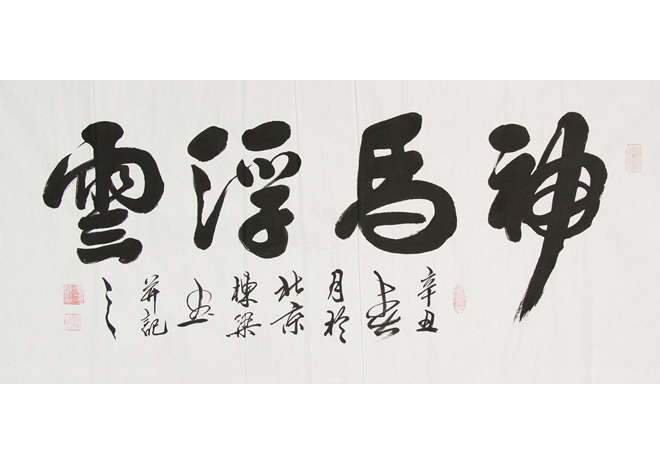 神馬浮雲
辛丑
春
月於
北京
棟樑
書
并記
之